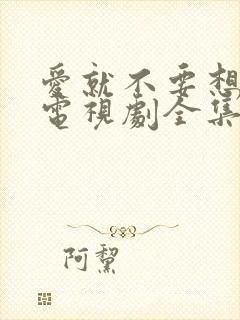 愛就不要想
電視劇全集
阿黧